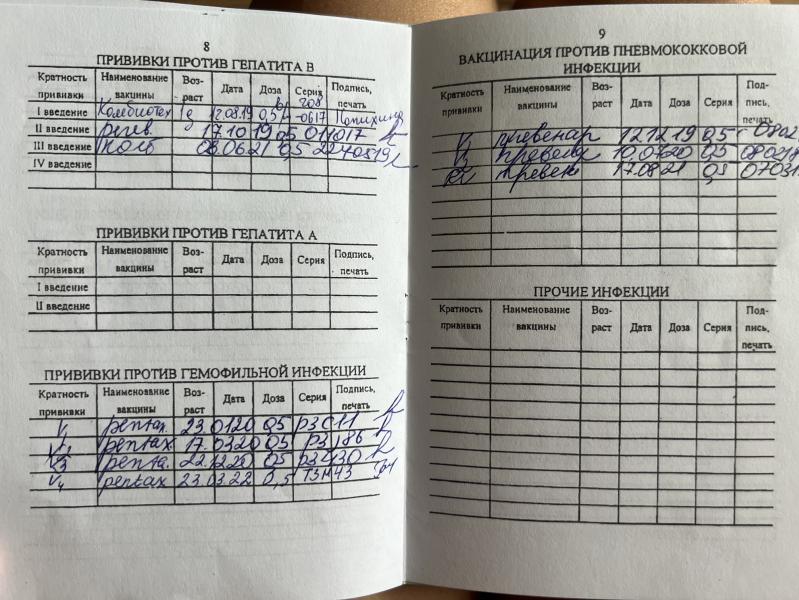 8
ПРИВИВКИ ПРОТИВ ГЕПАТИТА В
Кратность прививки Наименование вакцины Воз-раст Дата Доза Серия Подпись, печать
I введение Комбиотех 12.08.19 0,5 -0617
II введение 17.10.19 0,5 011017
III введение 08.06.21 0,5
IV введение
ПРИВИВКИ ПРОТИВ ГЕПАТИТА А
Кратность прививки Наименование вакцины Воз-раст Дата Доза Серия Подпись, печать
I введение
II введение
ПРИВИВКИ ПРОТИВ ГЕМОФИЛЬНОЙ ИНФЕКЦИИ
Кратность прививки Наименование вакцины Воз-раст Дата Доза Серия Подпись, печать
V1 pentax 23.01.20 0,5
V2 pentax 17.03.20 0,5
V3 penta. 22.12.20 0,5
V4 pentax 23.03.22 0,5
9
ВАКЦИНАЦИЯ ПРОТИВ ПНЕВМОКОККОВОЙ
ИНФЕКЦИИ
Кратность прививки Наименование вакцины Воз-раст Дата Доза Серия Под-пись, печать
V1 превенар 12.12.19 0,5
V2 10.07.20 0,5
RV превен 17.08.21 0,5
ПРОЧИЕ ИНФЕКЦИИ
Кратность прививки Наименование вакцины Воз-раст Дата Доза Серия Под-пись, печать